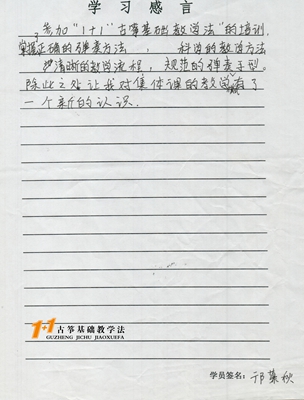 学习感言
参加“1+1”古筝基础教学法”的培训,
掌握正确的弹奏方法, 科学的教学方法
清晰的教学流程,规范的弹奏手型。
除此之外让我对集体课的教学有了
一个新的认识.
1+1古筝基础教学法
GUZHENG JICHU JIAOXUEFA
学员签名:邝 秋